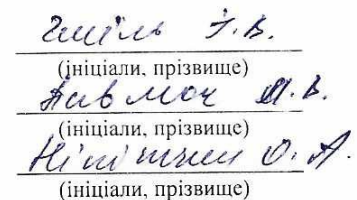 Гміль І. В.
(ініціали, прізвище)
Павмоч М. В.
(ініціали, прізвище)
О. А.
(ініціали, прізвище)